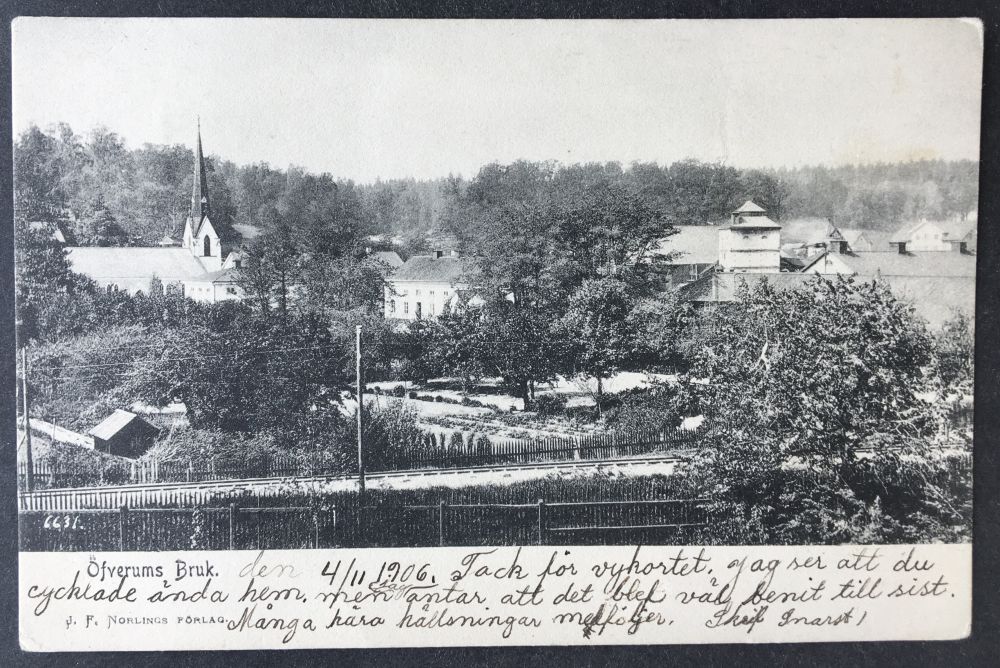 6631.
Öfverums Bruk. den 4/11 1906. Tack för vykortet. jag ser att du
cycklade ända hem. men jag antar att det blef väl benit till sist.
J. F. NORLINGS FÖRLAG. Många kära hällsningar medföljer. Skrif snarst!